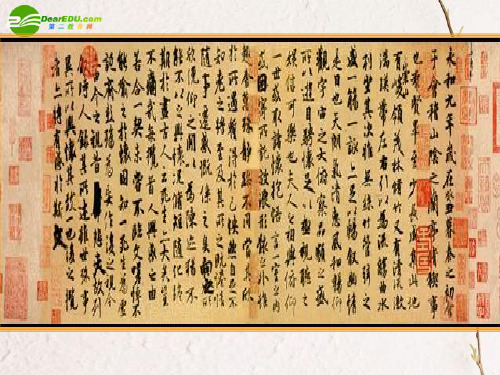 DearEDU.com
第二教育网
永和九年歲在癸丑暮春之初會
于會稽山陰之蘭亭脩稧事
也群賢畢至少長咸集此地
有崇山峻領茂林脩竹又有清流激
湍暎帶左右引以為流觴曲水
列坐其次雖無絲竹管弦之
盛一觴一詠亦足以暢敘幽情
是日也天朗氣清惠風和暢仰
觀宇宙之大俯察品類之盛
所以遊目騁懷足以極視聽之
娛信可樂也夫人之相與俯仰
一世或取諸懷抱悟言一室之內
或因寄所託放浪形骸之外雖
趣舍萬殊靜躁不同當其欣
於所遇蹔得於己怏然自足不
知老之將至及其所之既惓情
隨事遷感慨係之矣向之所
欣俛仰之間以為陳迹猶不
能不以之興懷況脩短隨化終
期於盡古人云死生亦大矣豈
不痛哉每攬昔人興感之由
若合一契未嘗不臨文嗟悼不
能喻之於懷固知一死生為虛
誕齊彭殤為妄作後之視今
亦由今之視昔悲夫故列
敘時人錄其所述雖世殊事
異所以興懷其致一也後之攬
者亦將有感於斯文